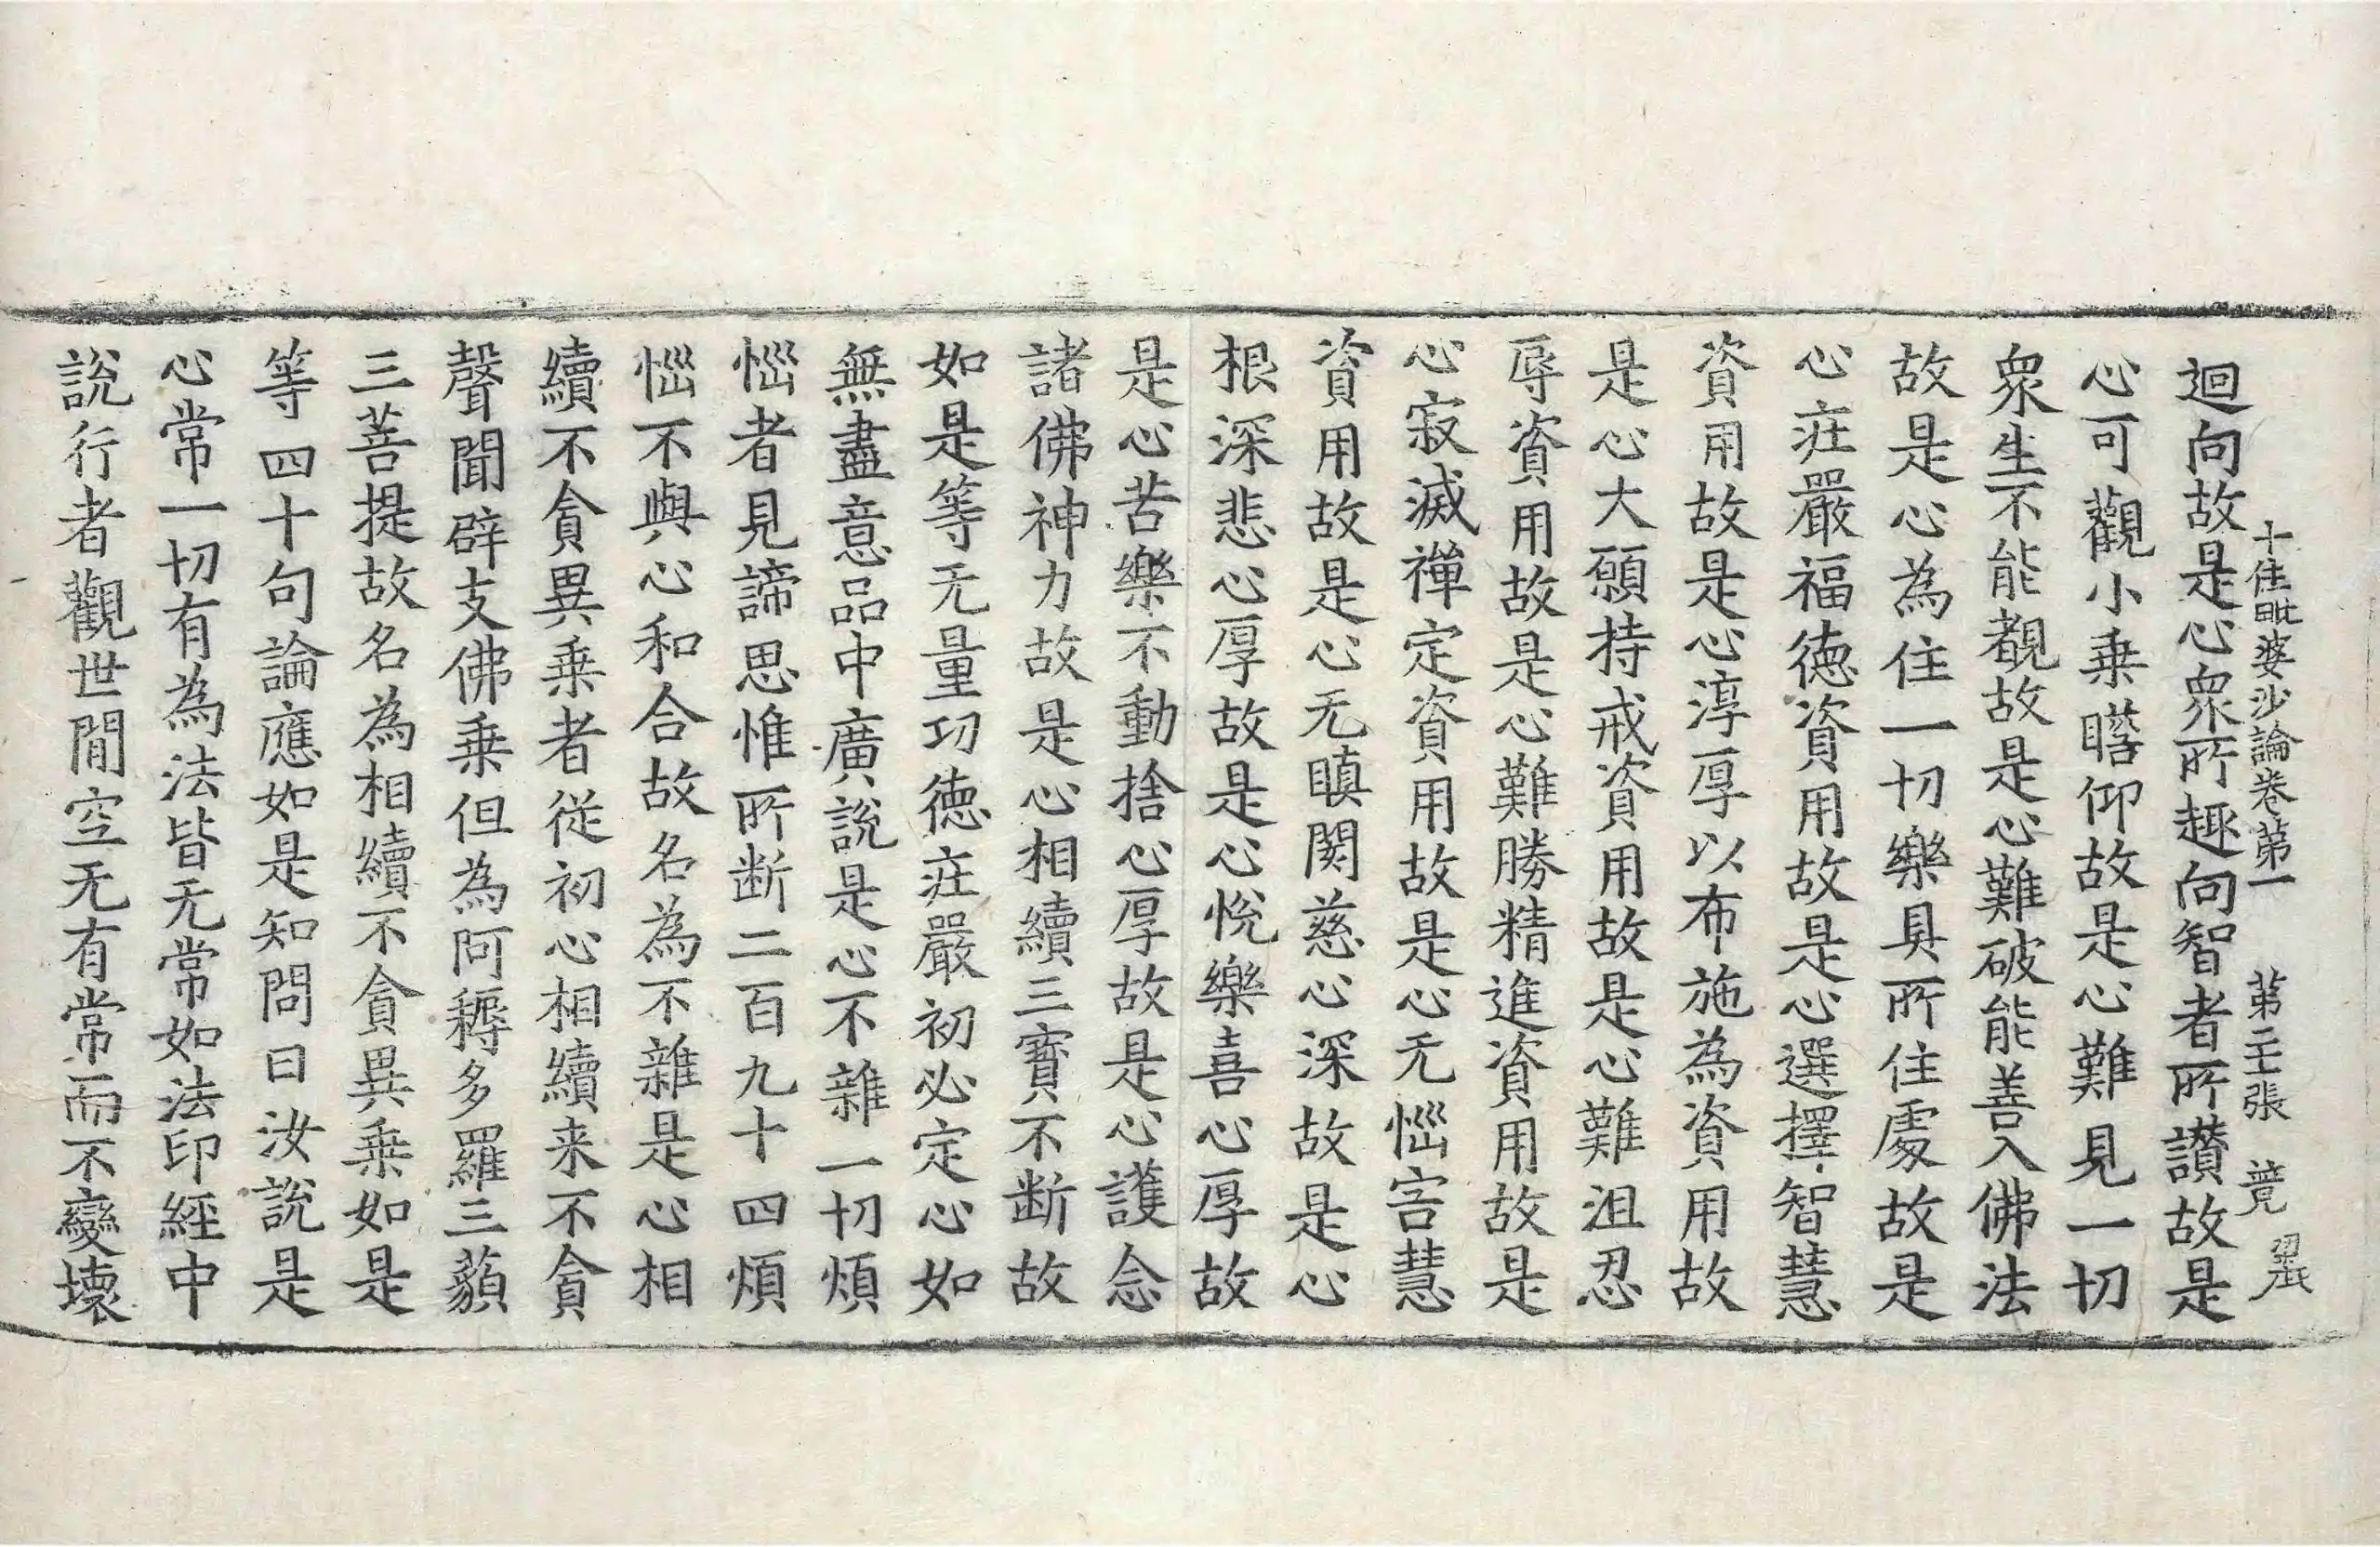 十住毗婆沙論卷第一　第二十張　競
迴向故是心衆所趣向智者所讃故是
心可觀小乗瞻仰故是心難見一切
衆生不能覩故是心難破能善入佛法
故是心為住一切樂具所住處故是
心庄嚴福徳資用故是心選擇智慧
資用故是心淳厚以布施為資用故
是心大願持戒資用故是心難沮忍
辱資用故是心難勝精進資用故是
心寂滅禪定資用故是心无惱害慧
資用故是心无瞋閡慈心深故是心
根深悲心厚故是心恱樂喜心厚故
是心苦樂不動捨心厚故是心護念
諸佛神力故是心相續三寳不断故
如是等无量功徳庄嚴初必定心如
無盡意品中廣說是心不雜一切煩
惱者見諦思惟所断二百九十四煩
惱不與心和合故名為不雜是心相
續不貪異乗者從初心相續来不貪
聲聞辟支佛乗但為阿耨多羅三藐
三菩提故名為相續不貪異乗如是
等四十句論應如是知問曰汝說是
心常一切有為法皆无常如法印經中
說行者觀世間空无有常而不變壞